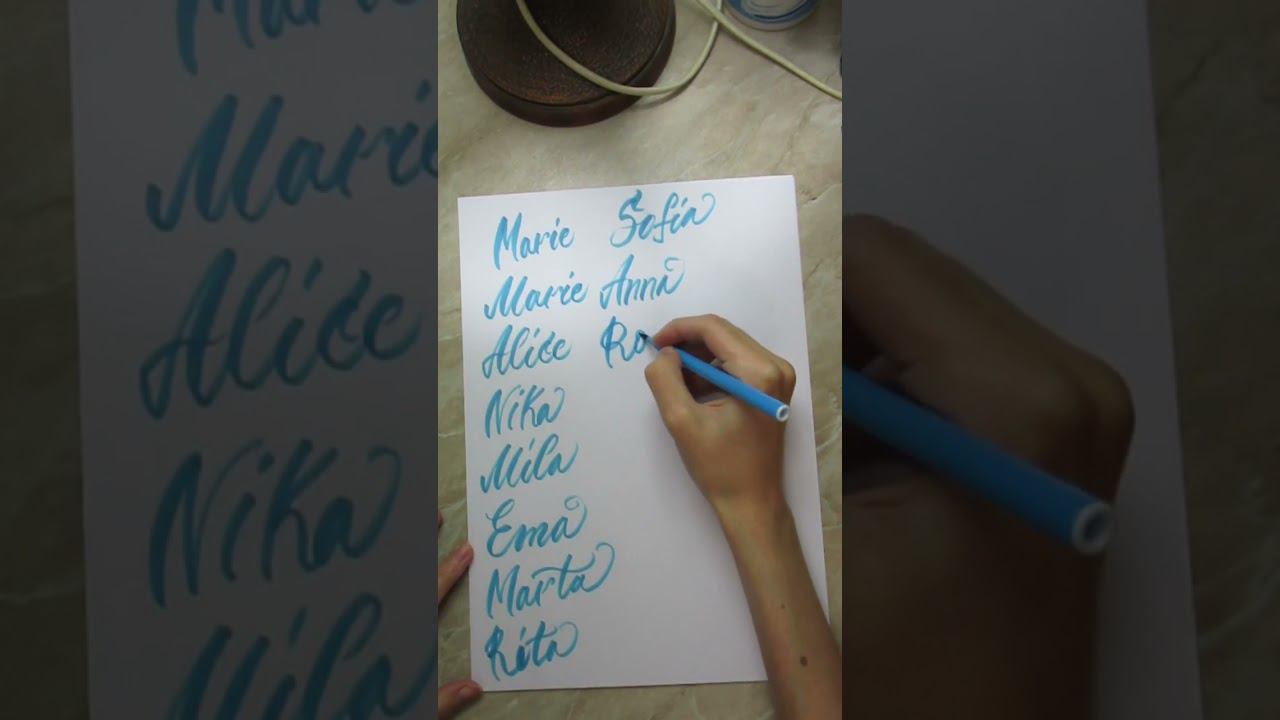 Marie Sofia
Marie Anna
Alice Ro
Nika
Mila
Ema
Marta
Rita